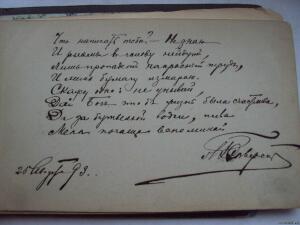 Что написать тебе? — Не знаю
И рифмы в голову нейдут,
Лишь пропадет напрасной трудъ,
И лишь бумагу измараю.
Скажу одно: не унывай,
Дай Богъ чтобъ жизнь была счастлива,
Да за бутылкой водки, пива
Меня почаще вспоминай
93.